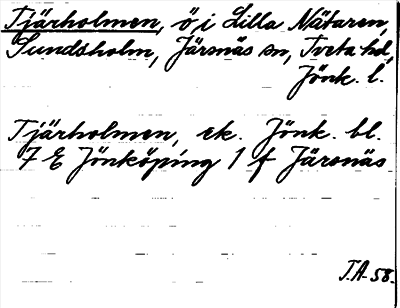 Tjärholmen, ö, i Lilla Nätaren,
Sundsholm, Järsnäs sn, Tveta hd,
Jönk. l.
Tjärholmen, ek. Jönk. bl.
7 E Jönköping 1 f Järsnäs
T.A. 58.